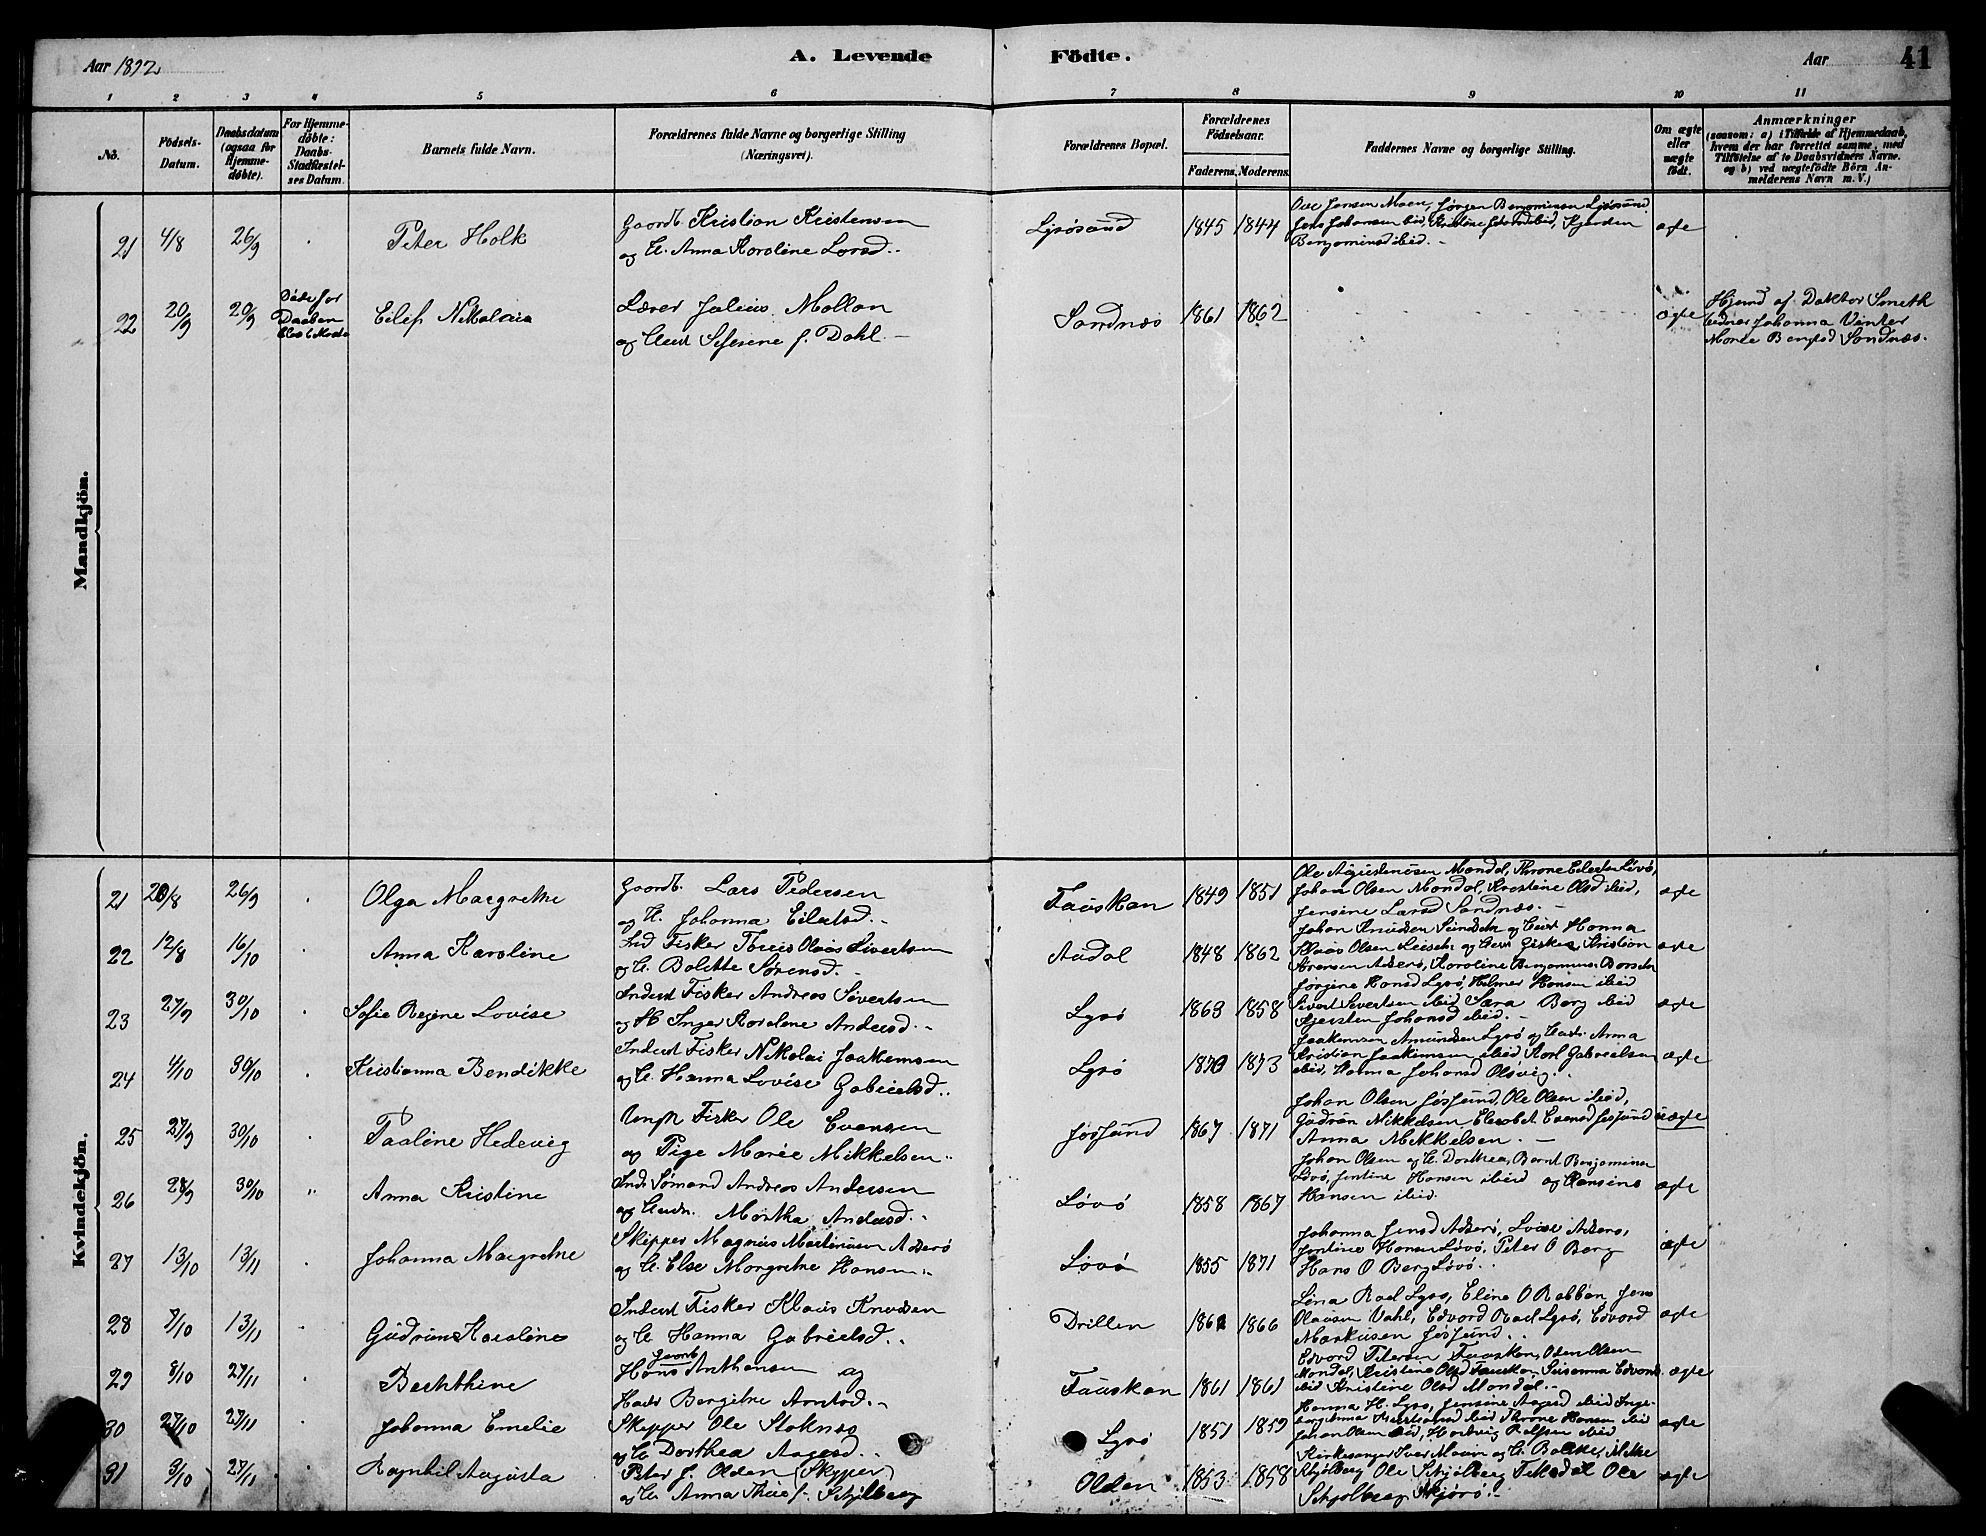 Aar 1892.
A. Levende
Födte.
Aar
41
1 2 3 4 5 6 7 8 9 10 11
No.
Födsels-Datum.
Daabsdatum (ogsaa for Hjemmedøbte).
For Hjemmedøbte: Daabs-Stadfæstelses Datum.
Barnets fulde Navn.
Forældrenes fulde Navne og borgerlige Stilling (Næringsvei).
Forældrenes Bopæl.
Forældrenes Födselsaar.
Faderens. Moderens.
Faddernes Navne og borgerlige Stilling.
Om ægte eller uægte født.
Anmærkninger (saasom: a) i Tilfælde af Hjemmedaab, hvem der har forrettet samme, med Tilføielse af to Daabsvidners Navne. og b) ved uægtefødte Börn Anmelderens Navn m. V.)
Mandkjön.
21 4/8 26/9 Peter Holk
Gaardb. Kristian Kristensen
og H. Anna Karoline Larsd.
Lysösund 1845 1844
Ole Jensen Moen, Jørgen Benjaminsen Lysøsund
Jens Johansen ibid, Kristine
Benjaminsd ibid.
ægte
22 20/9 20/9
Døde før
Daaben
Eilef Nikolai
Lærer Julius Mollan
og Hust Sefirine f. Dahl.
Sandnæs 1861 1862
ægte
Hjmd af Doktor Smith
Vidner Johanna Vinter
Marie Bengtsd Sandnæs.
Kvindekjön.
21 20/8 26/9 Olga Margrethe
Gaardb. Lars Pedersen
og H. Johanna Eilertsd.
Fauskan 1849 1851
Johan Olsen Mandal, Kristine Olsd ibid,
Jensine Larsd Sandnæs.
ægte
22 12/8 16/10 Anna Karoline
Ind Fisker Olaus Sivertsen
og H. Bolette Sørensd.
Audal 1848 1862
Johan Knudsen og Hust Hanna
ægte
23 27/9 30/10 Sofie Regine Lovise
Inderst Fisker Andreas Sivertsen
og H Inger Karoline Andersd.
Lysö 1869 1858
Jørgine Hansd Lysø, Hilmer Hansen ibid
Sivert Sivertsen ibid Sara Berg ibid
Kjersten Johansd ibid.
ægte
24 4/10 30/10 Kristianna Bendikke
Inderst Fisker Nikolai Joakimsen
og H. Hanna Lovise Gabrielsd.
Lysö 1870 1873
Joakimsen Amundsen Lysø og Hust. Anna
Kristian Joakimsen ibid Karl Gabrielsen
ibid, Hanna Johansd Olsvig.
ægte
25 27/9 30/10 Pauline Hedevig
Ungk Fisker Ole Evensen
og Pige Marie Mikkelsen
Jøssund 1867 1871
Johan Olsen Jøssund, Ole Olsen ibid,
Gudrun Mikkelsen Elisabet Evensd Jøssund
Anna Mikkelsen.
uægte
26 28/9 30/10 Anna Kristine
Ind. Sømand Andreas Andersen
og Hustr. Martha Andersd.
Løvö 1858 1867
Johan Olsen og H. Dorthea, Bernt Benjaminsen
Løvø, Jentine Hansen ibid og Hansine
Hansen ibid.
ægte
27 13/10 13/11 Johanna Margrethe
Skipper Magnus Martinusen Asserø
og H. Else Margrethe Hansen
Løvö 1855 1871
Johanna Jensd Asserø, Lovise Asserø,
Jentine Hansen Løvø, Peter O Berg
Hans O Berg Løvö.
ægte
28 7/10 13/11 Gudrun Karoline
Inderst Fisker Klaus Knudsen
og H Hanna Gabrielsd.
Drillen 1862 1866
Lina Rael Lysø, Eline O Rabben Jens
Olausen Vahl, Edvard Rael Lysø, Edvard
Markusen Jøssund.
ægte
29 8/10 27/11 Berthine
Gaardb
Hans Anthonsen og
Hust Bergithe Arntsd.
Fauskan 1861 1861
Edvard Petersen Fauskan, Oden Olsen
Mandal, Kristine Olsd Fauskan, Susanna Edvards.
ibid Kristine Olsd Mandal.
ægte
30 27/10 27/11 Johanna Emelie
Skipper Ole Stoknes
og H Dorthea Aagesd.
Lysö 1851 1859
Hanna H. Lysø, Jensine Aagesd ibid Inge-
borg Anna ibid Hansen ibid
Johan Olsen ibid, Hartvig Rolfsen ibid
ægte
31 9/10 27/11 Ragnhil Augusta
Peter J. Olden (Skipper)
og H. Anna f. Schjølberg
Olden 1853 1858
Kirkesanger Iver Moan og H. Bolette, Mikke
Schjølberg Ole Schjølberg Ole
Schjølberg
ægte